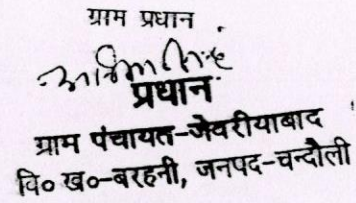 ग्राम प्रधान
प्रधान
ग्राम पंचायत-जेवरीयाबाद
वि० ख०-बरहनी, जनपद-चन्दौली